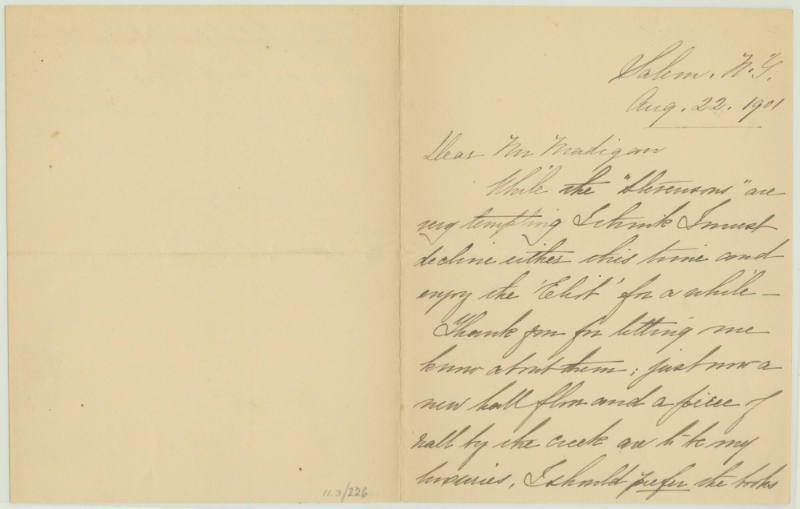 Salem. N.Y.
Aug. 22. 1901
Dear Mr Madigan
While the "Stevensons" are
very tempting I think I must
decline either this time and
enjoy the 'Eliot' for a while –
Thank you for letting me
know about them; just now a
new hall floor and a piece of
wall by the creek are to be my
luxuries, I should prefer the books
11.3/226